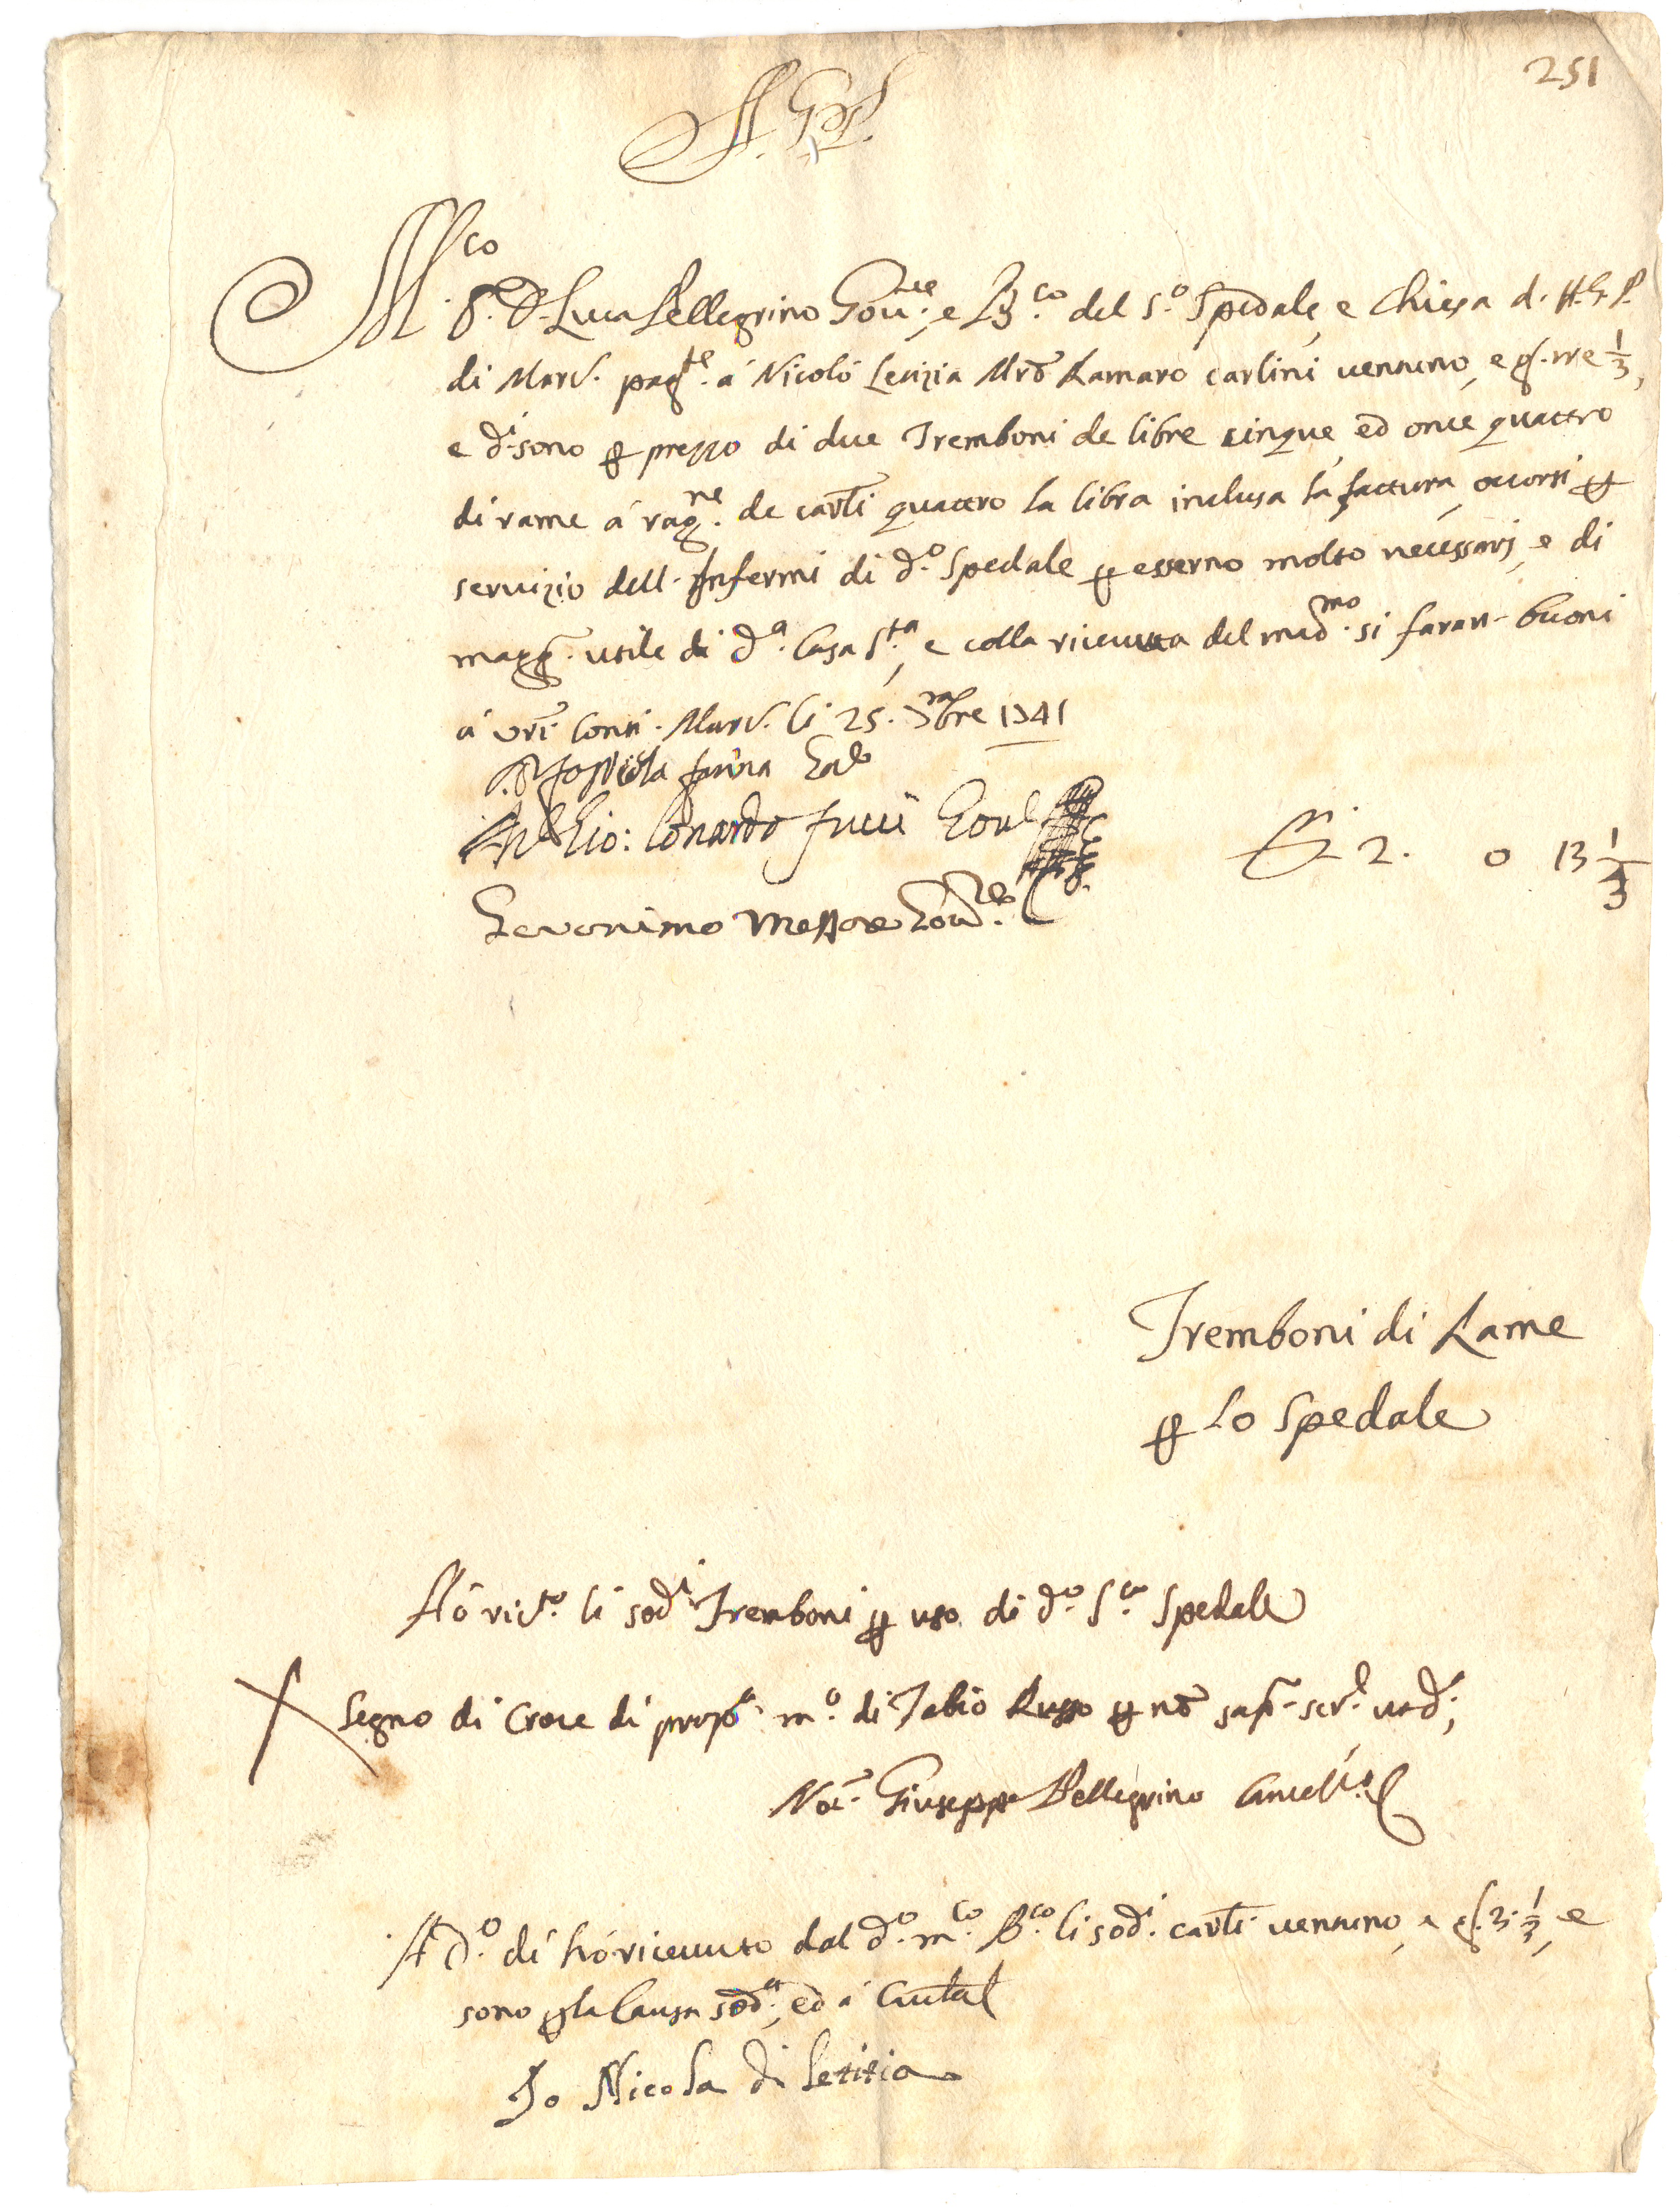 251
A. G. P.
M.co S.r D. Luca Pellegrino Gov.re, e B.co del S.o Spedale, e Chiesa d. A.G.P.
di Marc. pag.te á Nicoló Letizia Mrõ Ramaro carlini ventuno, e g. tre 1/3,
e d.i sono p prezzo di due Tremboni de libre cinque, ed once quattro
di rame á rag.ne de carl.i quattro la libra inclusa la fattura, occorsi p
servizio dell' Infermi di d.o Spedale p esserno molto necessarj, e di
magg. utile di d.a Casa S.ta, e colla ricevuta del med.mo si faran buoni
á vr̃i Conti. Marc. li 25. 7mbre 1741
Nicola farina
Gio: Conardo fucci Gov.
Geronimo Messore Gov.re
2. 0 13 1/3
Tremboni di Rame
p lo Spedale
Hó ric.to li sod.i Tremboni p uso di d.o S.to Spedale
Segno di Croce di prop.a m.o di Fabio Russo p nõ sap. scr. ut d.;
Not. Giuseppe Pellegrino Cancell.ro
A d.o dí hó ricevuto dal d.o m.co B.co li sod.i carl.i ventuno, e g. 3. 1/3, e
sono p la Causa sod.a, ed á Cautel
Io Nicola di Letitia